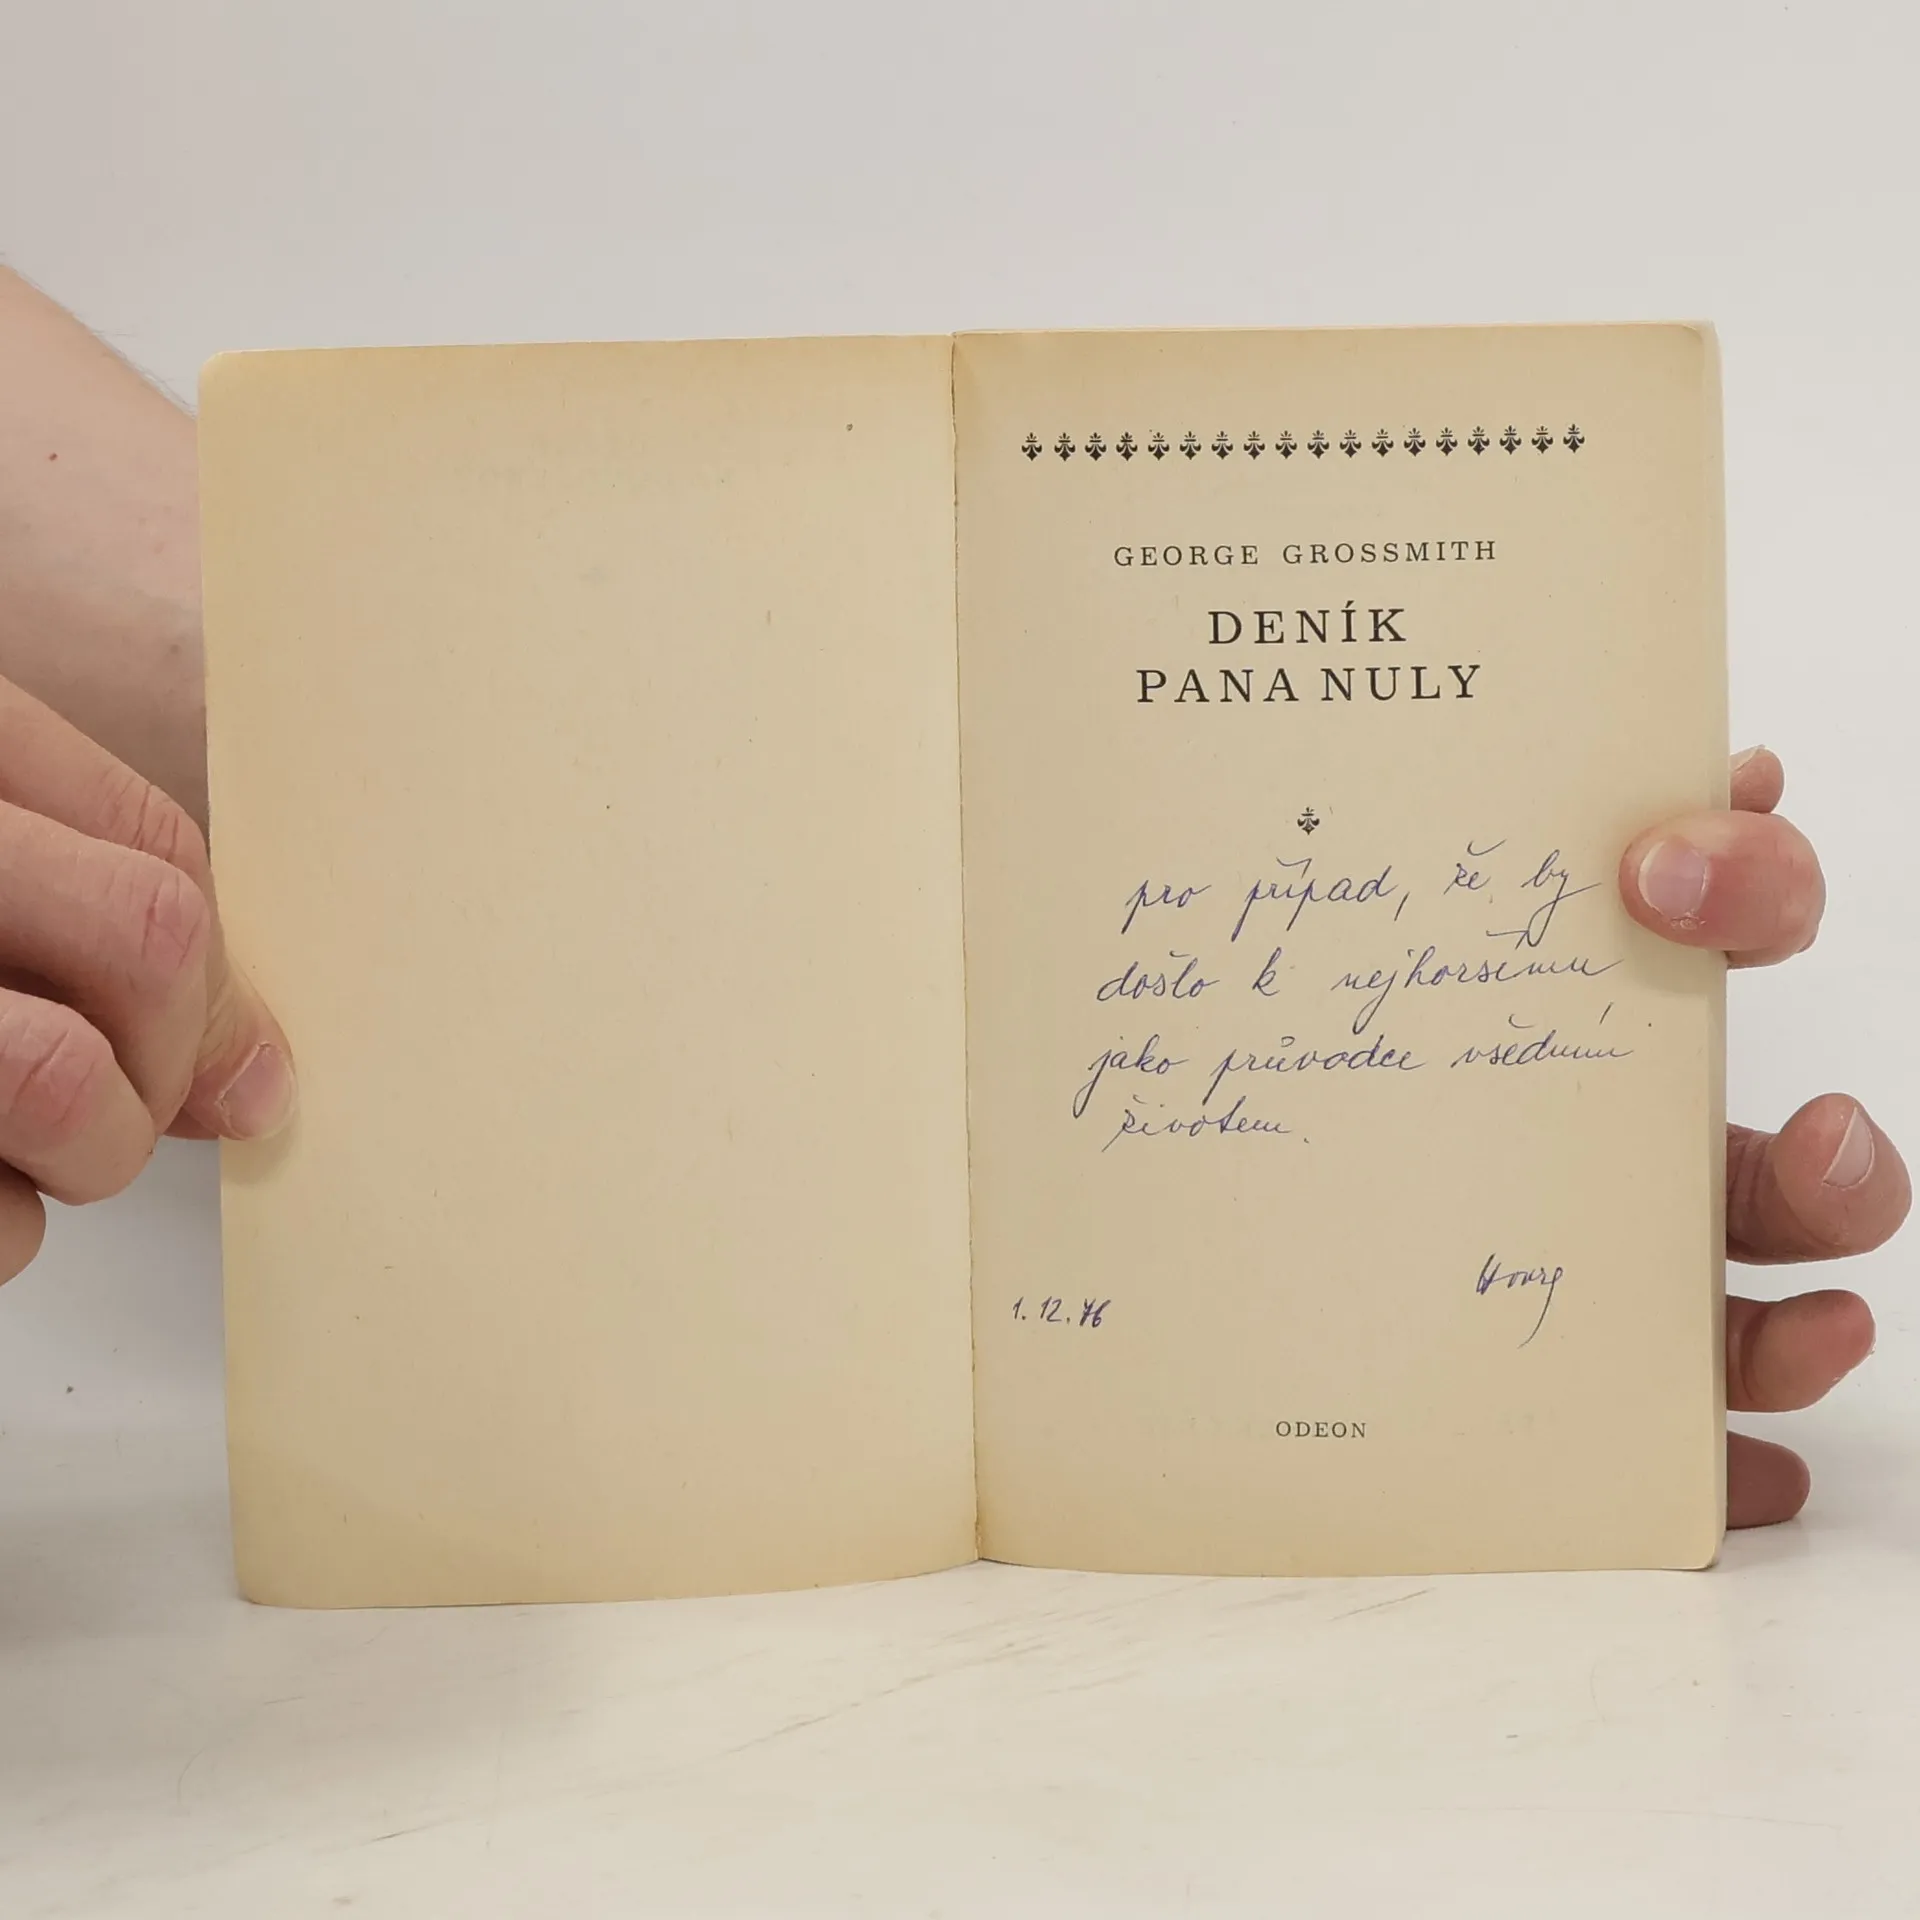 GEORGE GROSSMITH
DENÍK
PANA NULY
pro případ, že by
došlo k nejhoršímu
jako průvodce všedním
životem.
1. 12. 76
ODEON